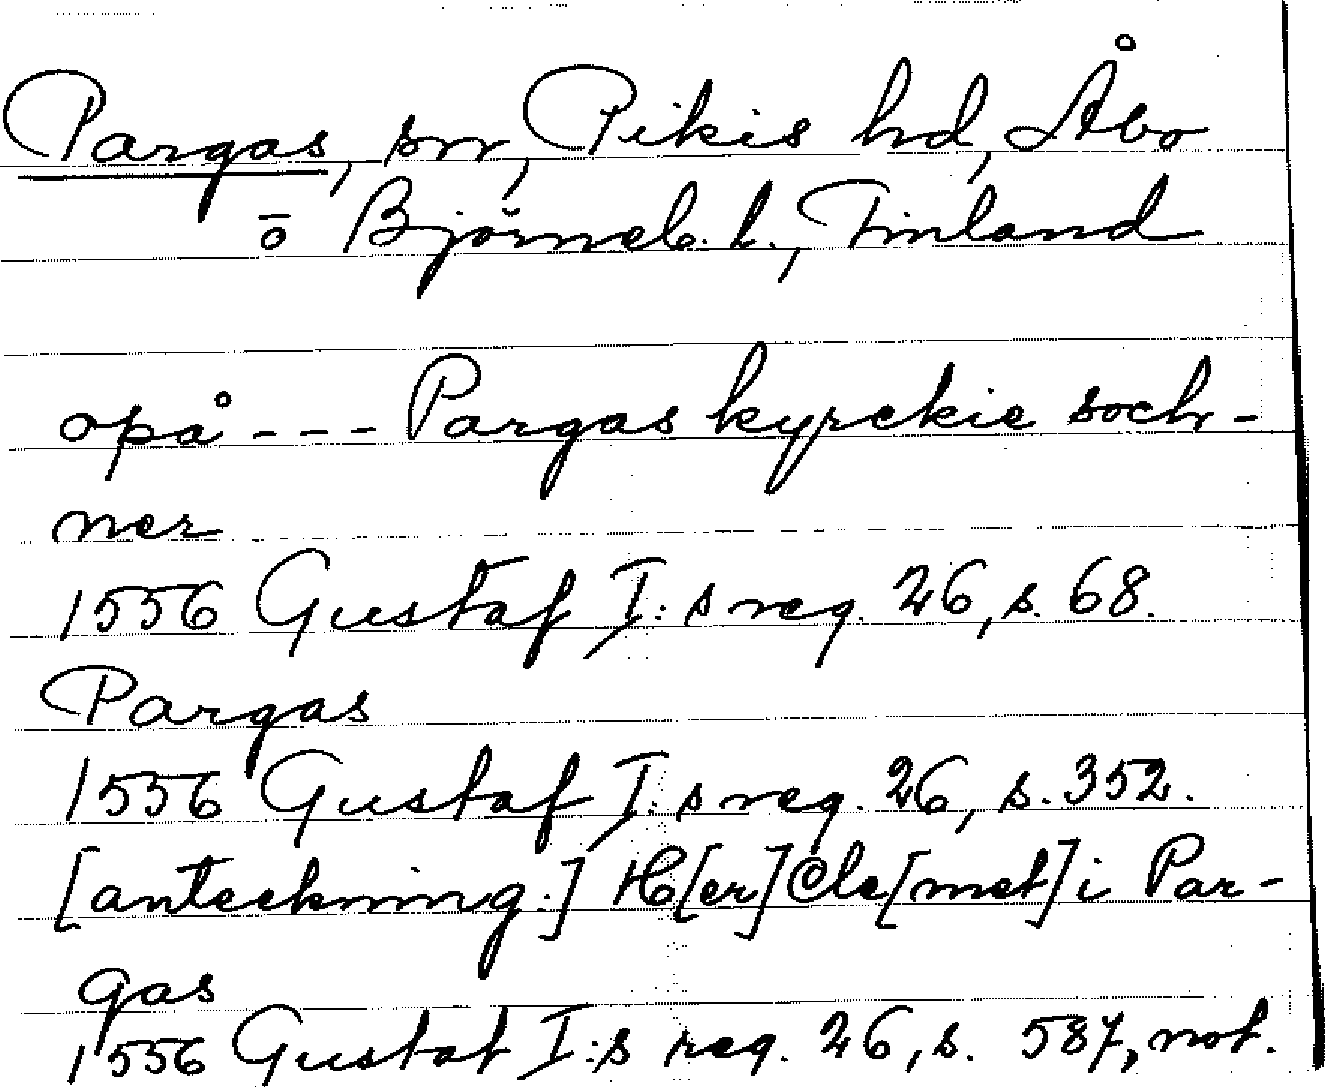 Pargas, sn, Pikis hd, Åbo
o Björneb. l., Finland
opå --- Pargas kyrckie soch-
ner
1556 Gustaf I:s reg. 26, s. 68.
Pargas
1556 Gustaf I:s reg. 26, s. 352.
[anteckning:] H[er] Cle[met] i Par-
gas
1556 Gustaf I:s reg. 26, s. 587, not.